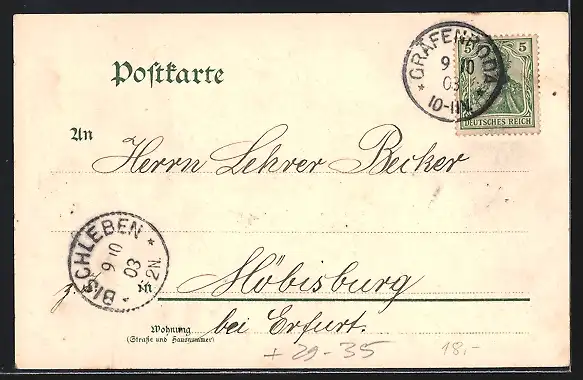 Postkarte
GRÄFENRODA
9 10
03
10-11N.
5 5
DEUTSCHES REICH
An
Herrn Lehrer Becker
BISCHLEBEN
9 10
03
2N.
in Möbisburg
bei Erfurt.
Wohnung
(Straße und Hausnummer)
+ 29-35
18.-